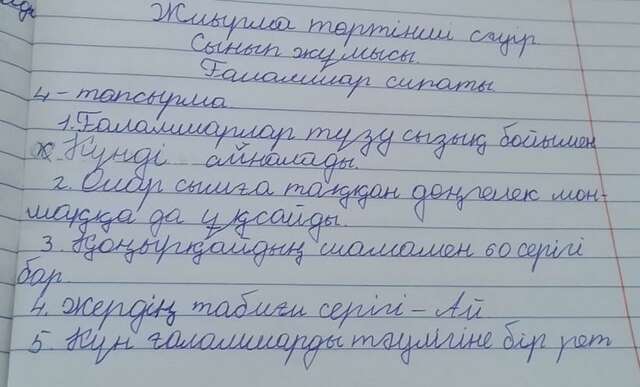 Жиырма төртінші сәуір
Сынып жұмысы.
Ғаламшар сипаты
4-тапсырма
1. Ғаламшарлар түзу сызық бойымен
Күнді айналады.
2. Олар сымға таққан дөңгелек мон-
шаққа да ұқсайды.
3. Қоңырқайдың шамамен 60 серігі
бар.
4. Жердің табиғи серігі - Ай
5. Күн ғаламшарды тәулігіне бір рет